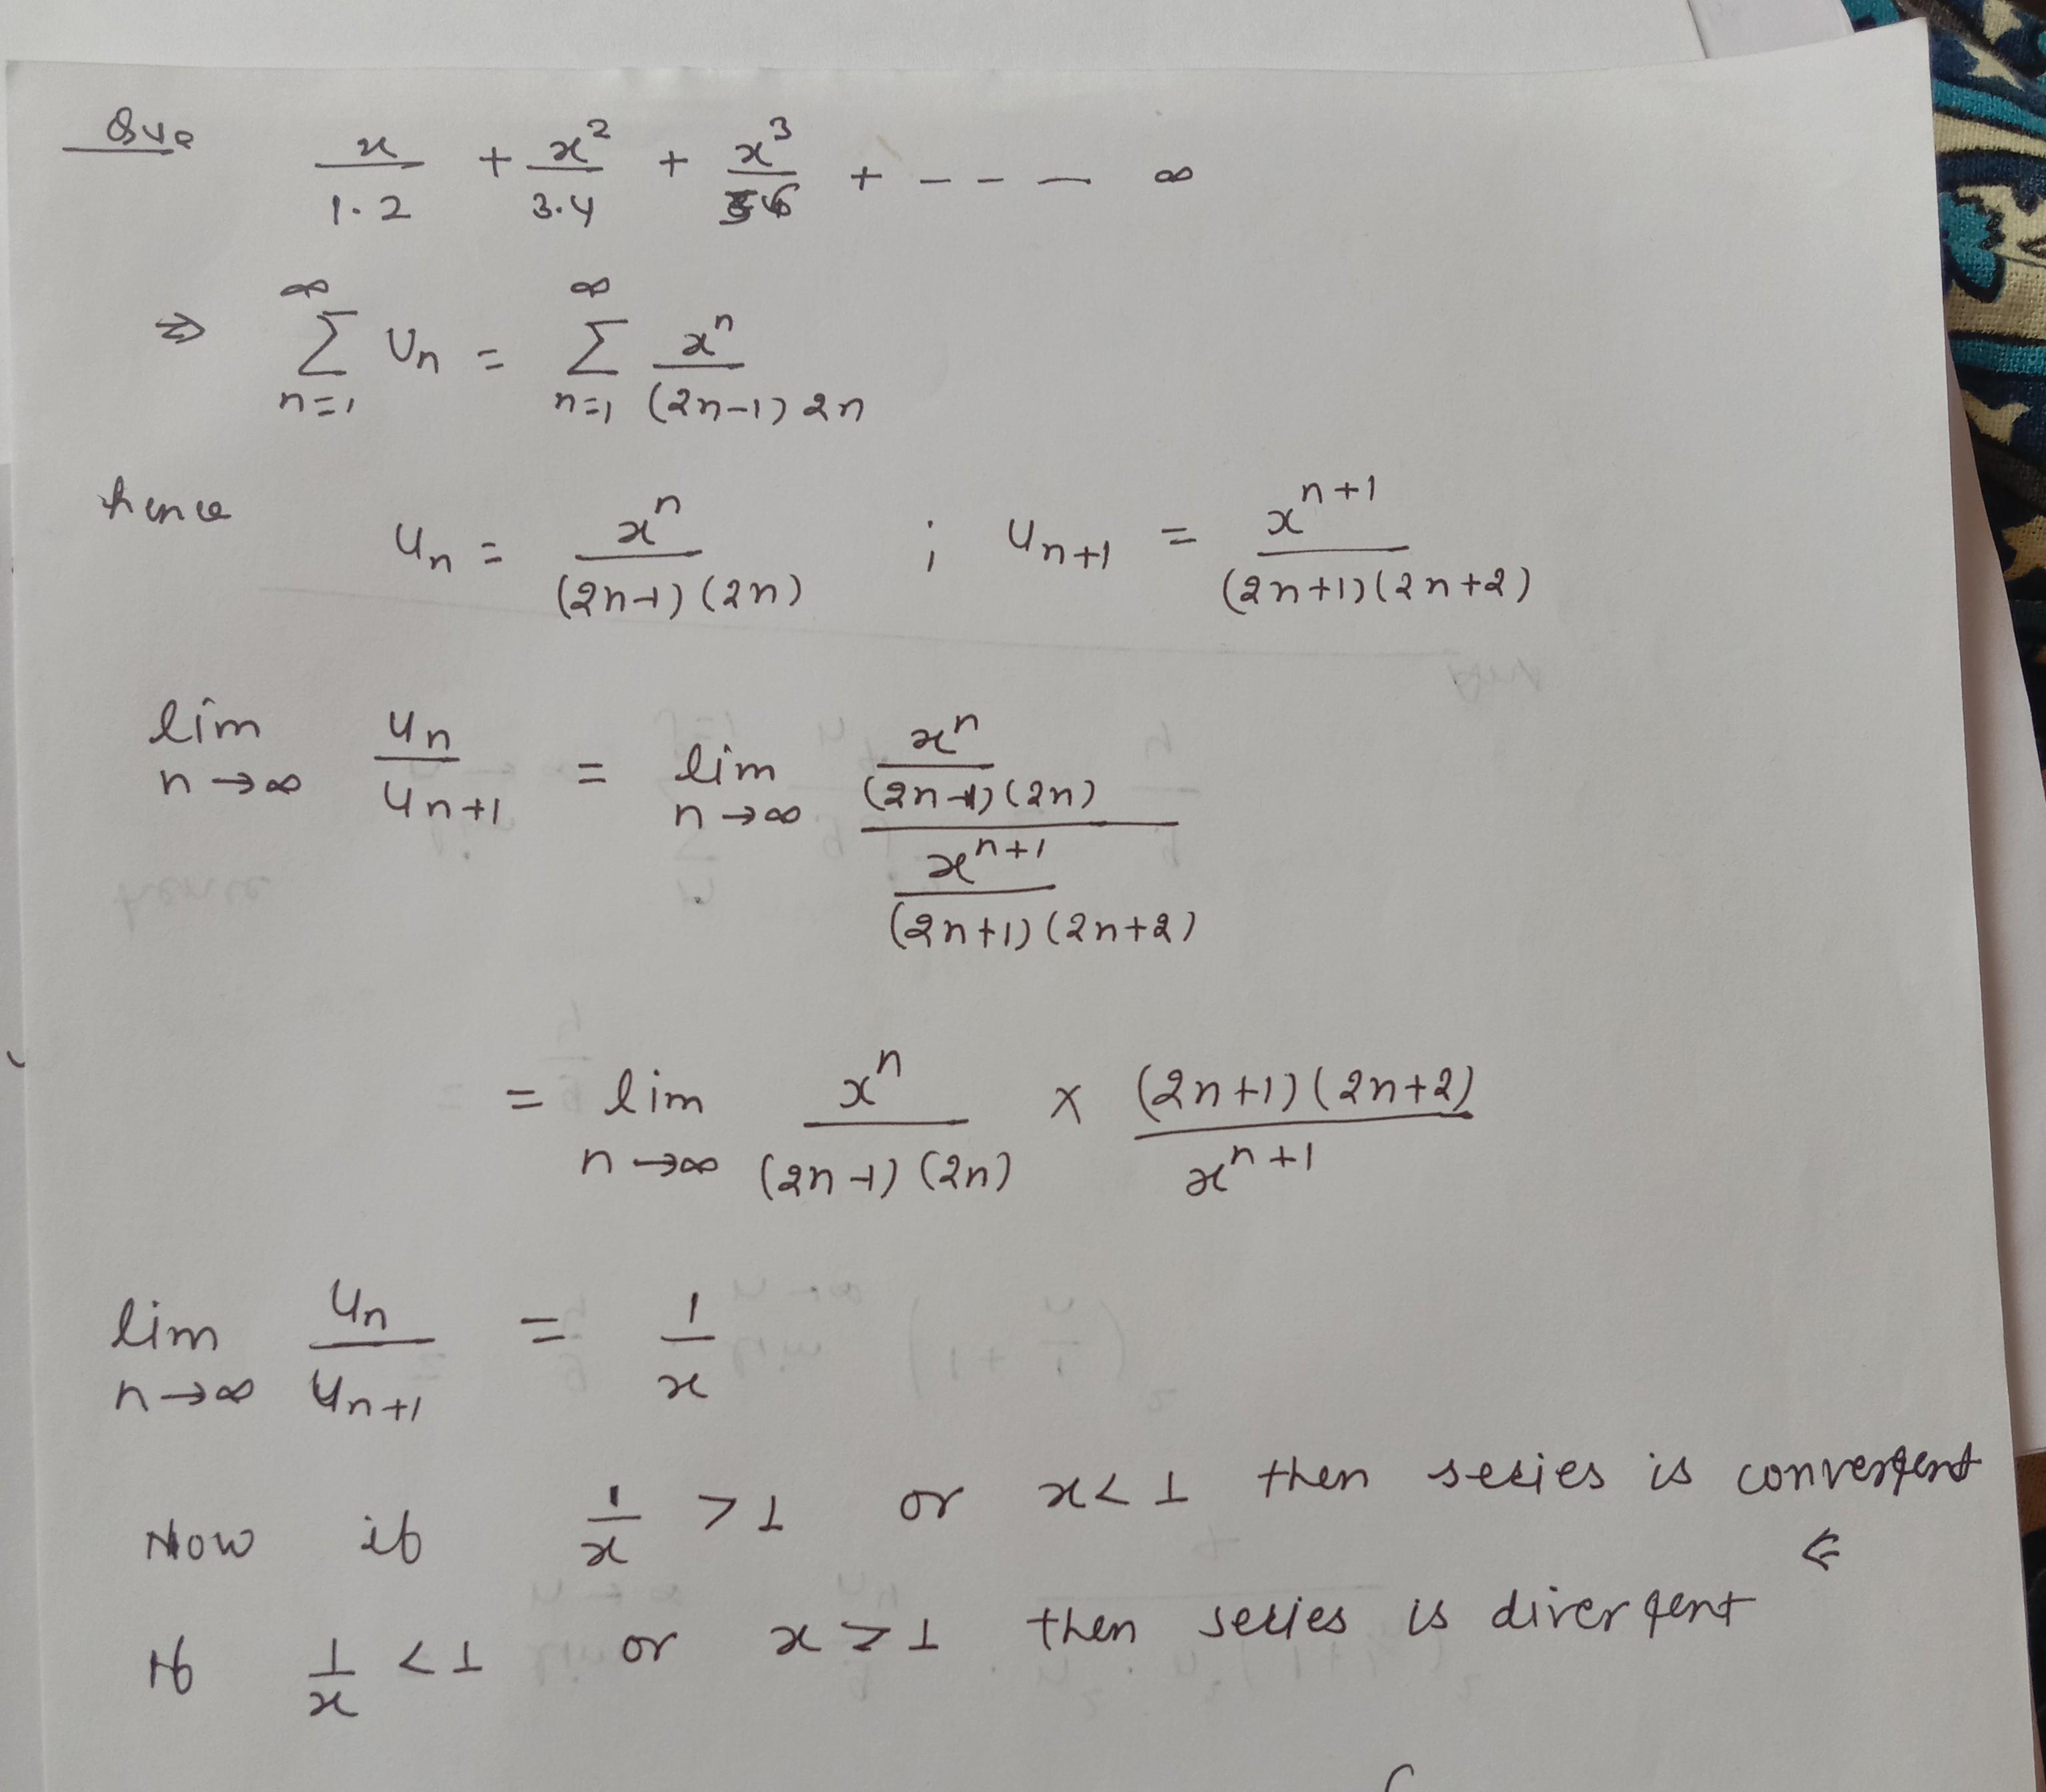 Que x/1.2 + x²/3.4 + x³/56 + - - - ∞
⇒ ∞∑n=1 Un = ∞∑n=1 xⁿ/(2n-1)2n
hence un = xⁿ/(2n-1)(2n) ; un+1 = xⁿ⁺¹/(2n+1)(2n+2)
lim n→∞ un/un+1 = lim n→∞ (xⁿ/(2n-1)(2n))/(xⁿ⁺¹/(2n+1)(2n+2))
= lim n→∞ xⁿ/(2n-1)(2n) × (2n+1)(2n+2)/xⁿ⁺¹
lim n→∞ un/un+1 = 1/x
Now if 1/x > 1 or x < 1 then series is convergent
⇐
If 1/x < 1 or x > 1 then series is divergent